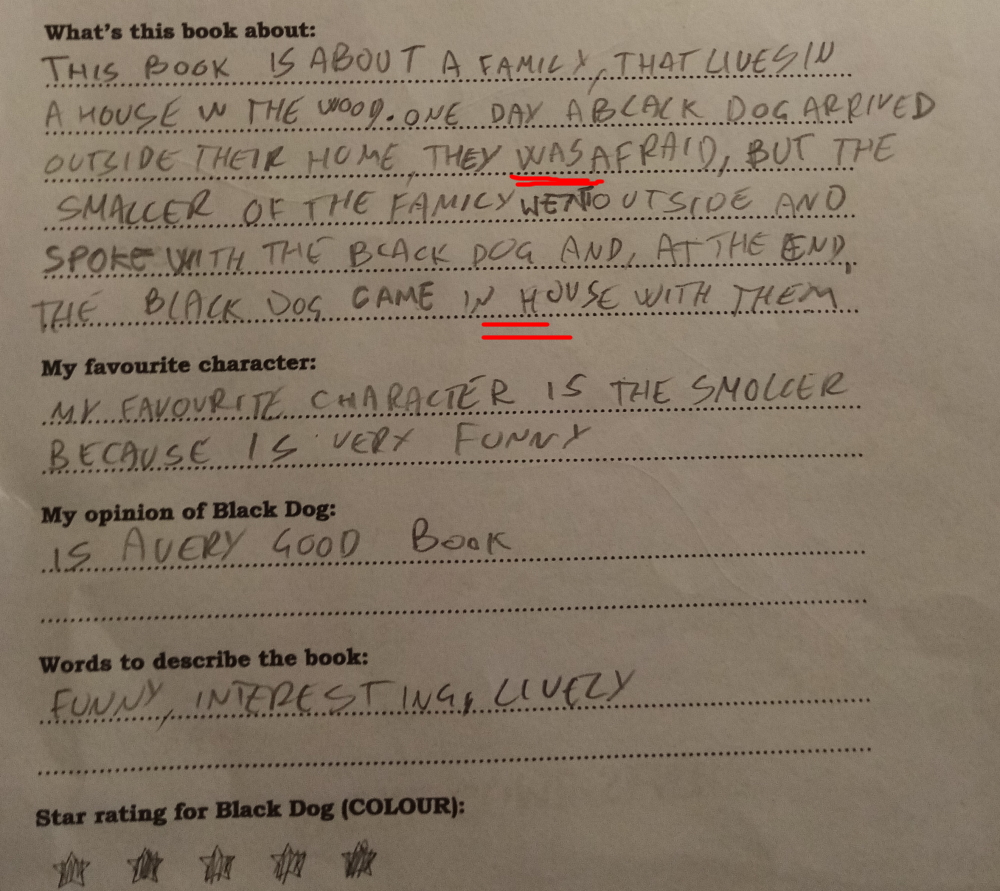 What's this book about:
THIS BOOK IS ABOUT A FAMILY, THAT LIVES IN
A HOUSE IN THE WOOD. ONE DAY A BLACK DOG ARRIVED
OUTSIDE THEIR HOME, THEY WAS AFRAID, BUT THE
SMALLER OF THE FAMILY WENT OUTSIDE AND
SPOKE WITH THE BLACK DOG AND, AT THE END,
THE BLACK DOG CAME IN HOUSE WITH THEM
My favourite character:
MY FAVOURITE CHARACTER IS THE SMOLLER
BECAUSE IS VERY FUNNY
My opinion of Black Dog:
IS A VERY GOOD BOOK
Words to describe the book:
FUNNY, INTERESTING, LIVELY
Star rating for Black Dog (COLOUR):